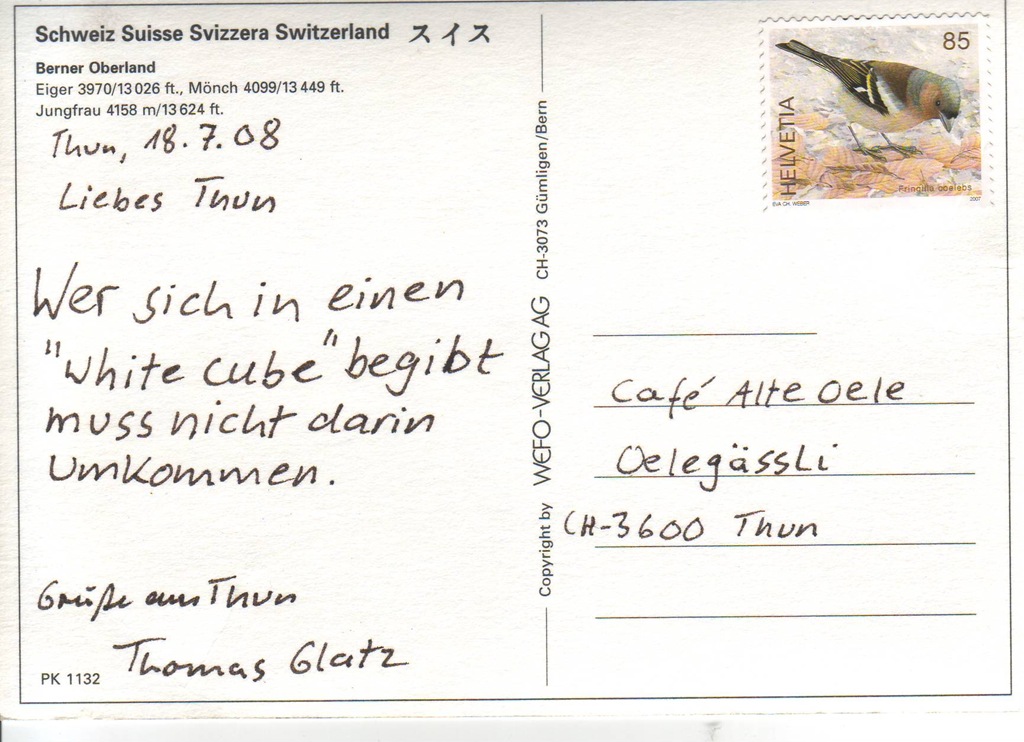 Schweiz Suisse Svizzera Switzerland スイス
Berner Oberland
Eiger 3970/13 026 ft., Mönch 4099/13 449 ft.
Jungfrau 4158 m/13 624 ft.
Thun, 18.7.08
Liebes Thun
Wer sich in einen
"white cube" begibt
muss nicht darin
umkommen.
Grüße aus Thun
Thomas Glatz
PK 1132
Copyright by WEFO-VERLAG AG CH-3073 Gümligen/Bern
85
HELVETIA
Fringilla coelebs
EVA CH. WEBER
2007
Café Alte Oele
Oelegässli
CH-3600 Thun